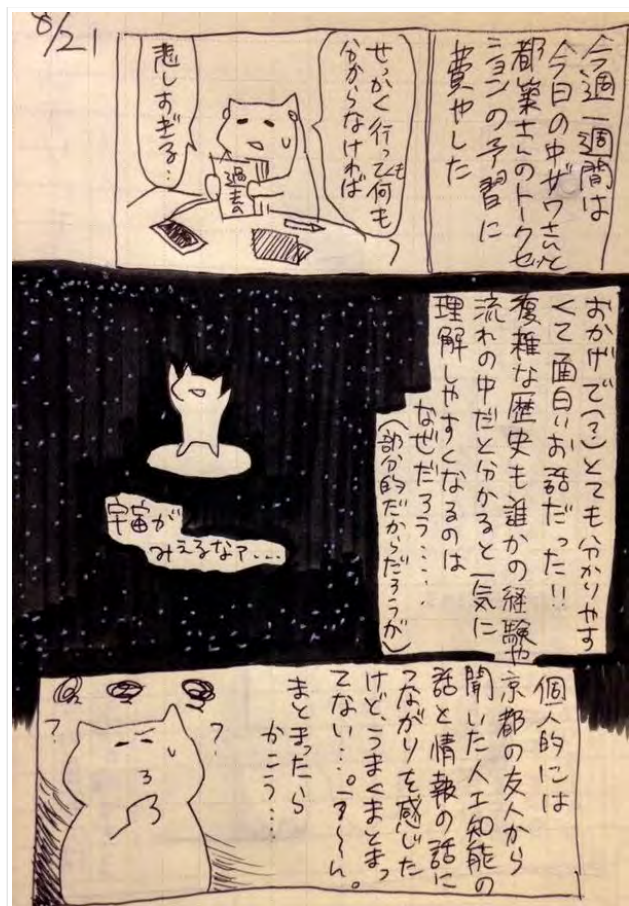 8/21
今週一週間は
今日の中ザワさんと
都築さんのトークセッ
ションの予習に
費やした
せっかく行っても何も
分からなければ
悲しすぎる…
過去の
おかげで(?)とても分かりやす
くて面白いお話だった!!
複雑な歴史も誰かの経験や
流れの中だと分かると一気に
理解しやすくなるのは
なぜだろう‥‥
(部分的だからだろうが)
宇宙が
みえるなァ…
個人的には
京都の友人から
聞いた人工知能の
話と情報の話に
つながりを感じた
けど、うまくまとまっ
てない…。う〜ん。
まとまったら
かこう…
?
?